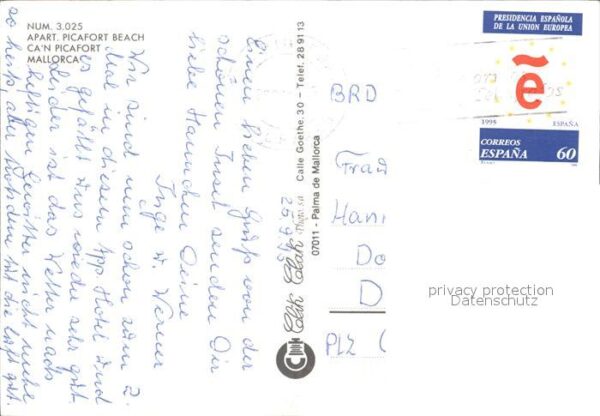 NUM. 3.025
APART. PICAFORT BEACH
CA'N PICAFORT
MALLORCA
25.9.95
Einen lieben Gruß von der
schönen Insel senden Dir
liebe Hannchen Deine
Inge u. Werner
Wir sind nun schon zum 2.
Mal in diesem App. Hotel und
es gefällt uns wieder sehr gut
leider ist das Wetter nach
heftigen Gewitter nicht mehr
so heiß, aber trotzdem ist die Luft gut.
Clik Clak
07011 - Palma de Mallorca
Calle Goethe, 30 - Telef. 28 91 13
PRESIDENCIA ESPAÑOLA
DE LA UNION EUROPEA
ẽ
1995 ESPAÑA
CORREOS
ESPAÑA 60
BRD
Frau
Hann
Do
D
PLZ
privacy protection
Datenschutz